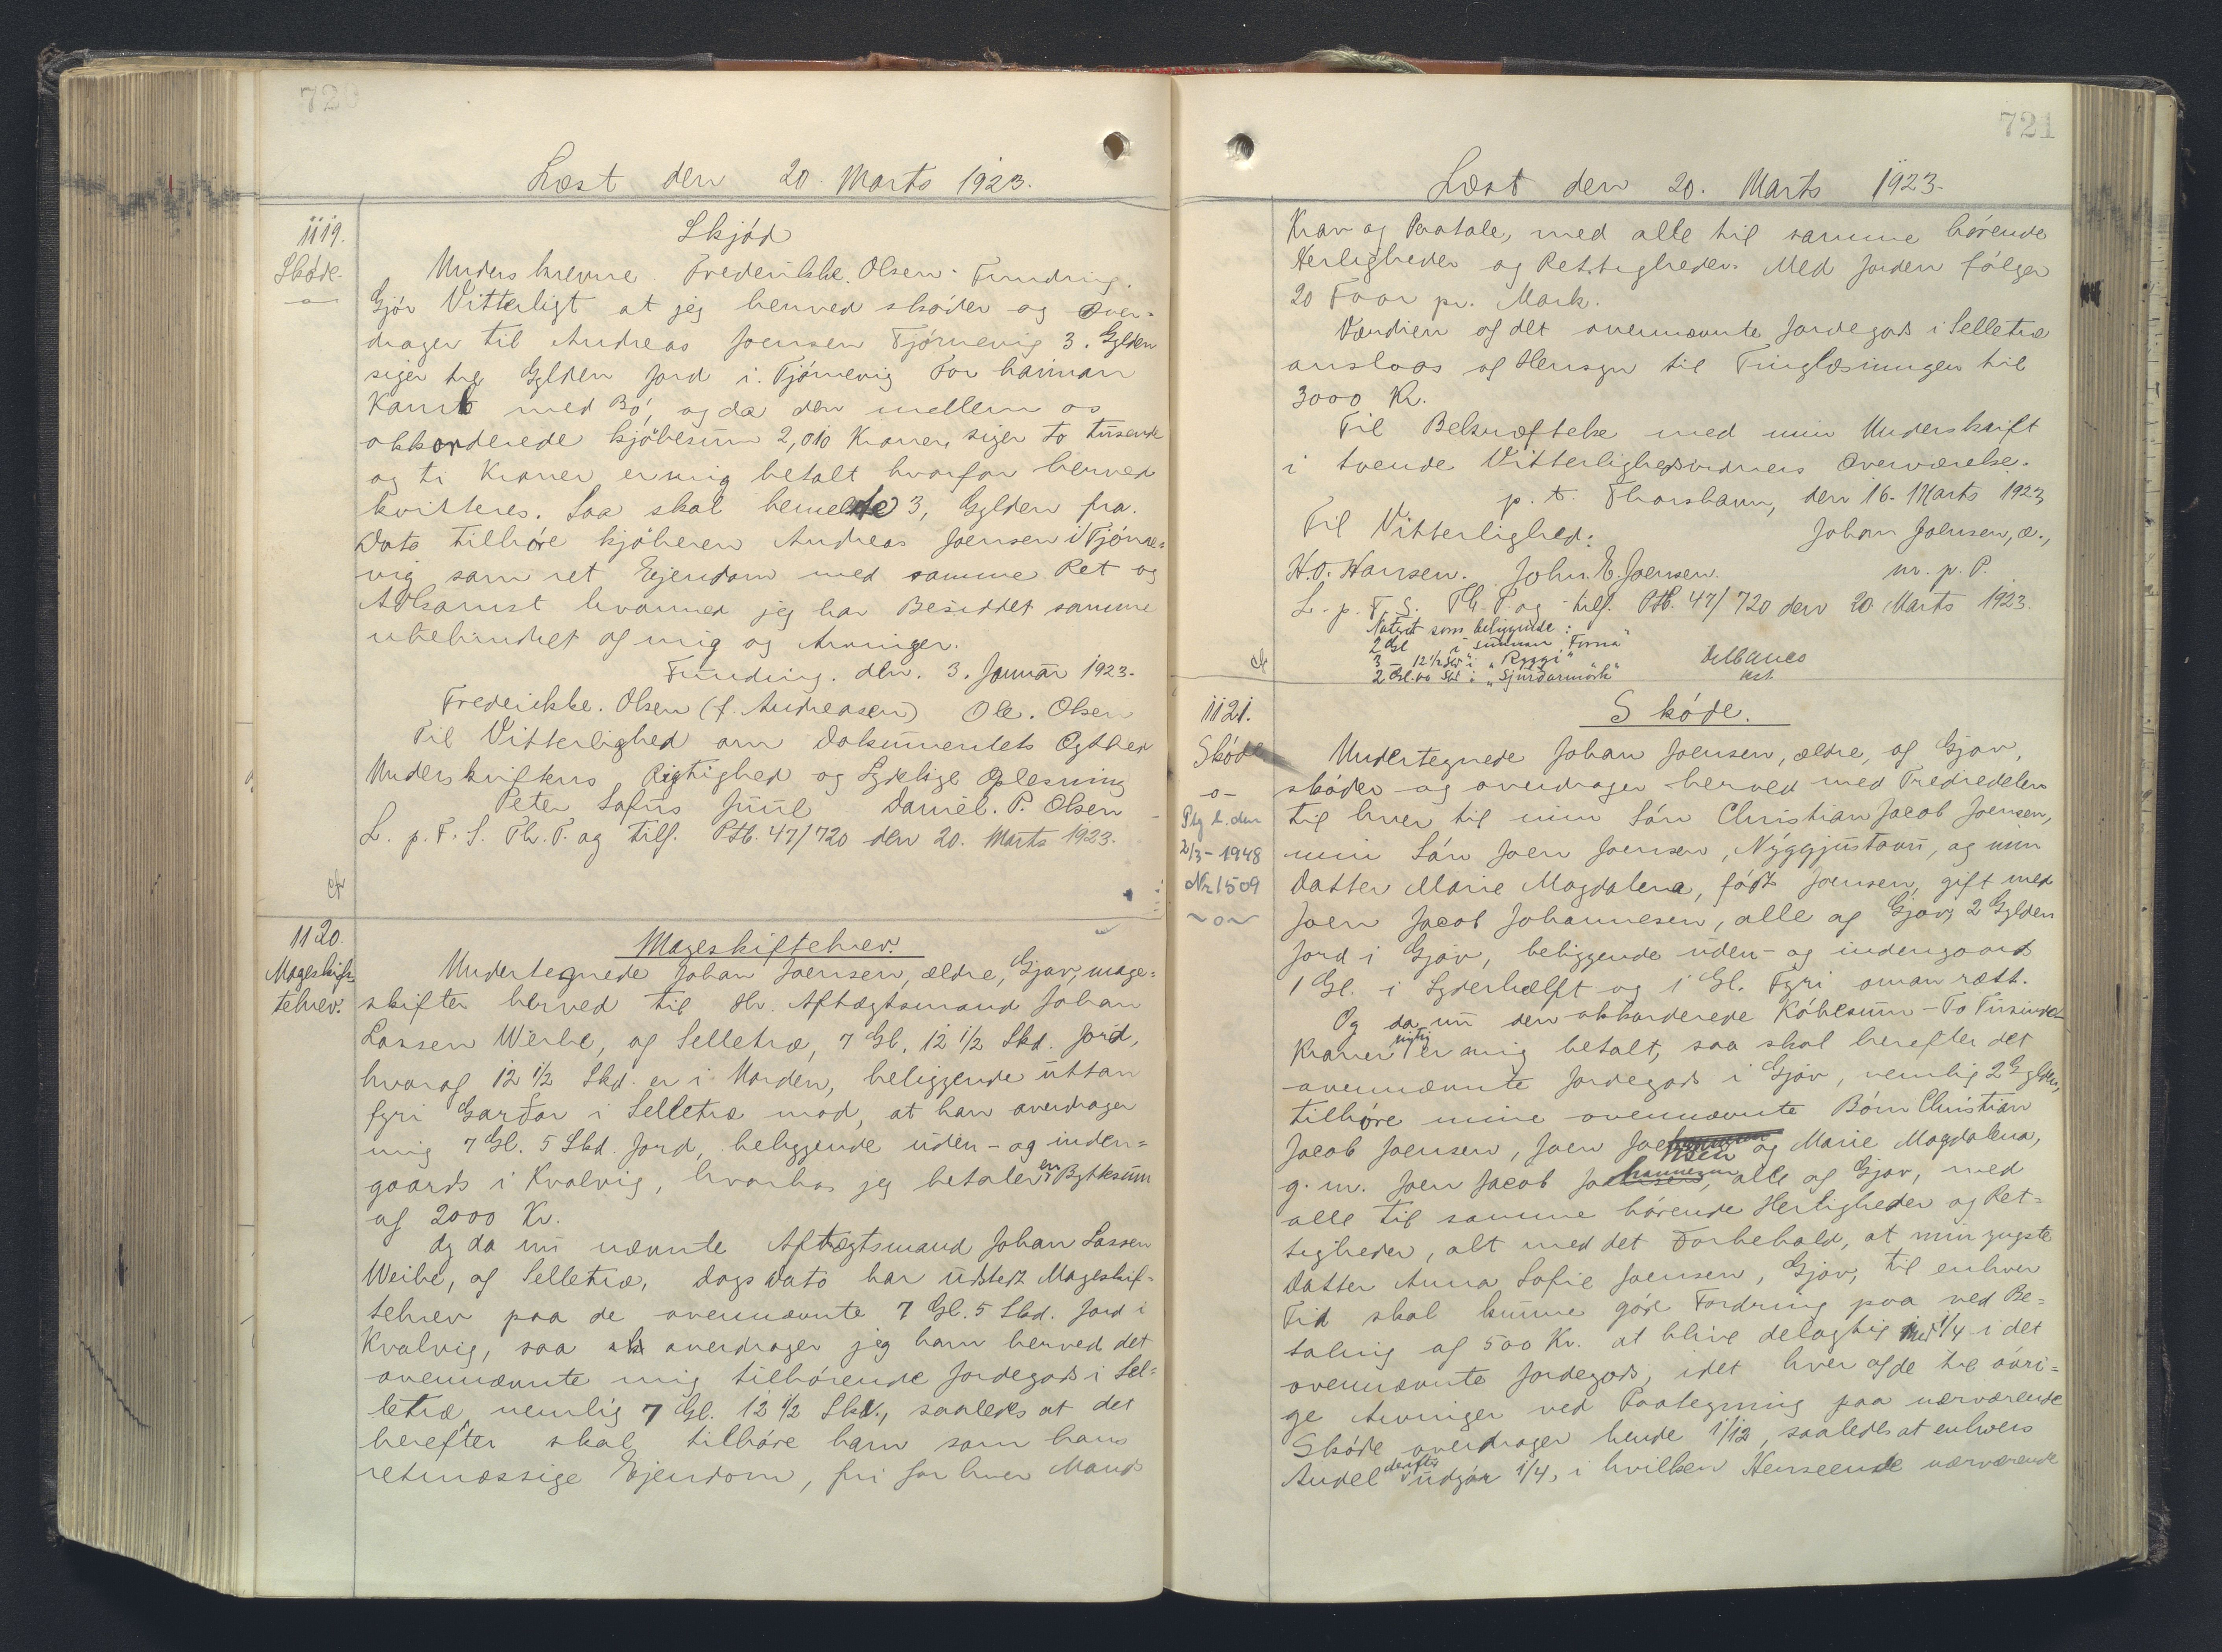 720
Læst den 20. Marts 1923.
1119.
Skøde.
Skjód
Underskrevne Frederikke. Olsen. Funding.
Gjör Vitterligt at jeg herved skøder og over-
drager til Andreas Joensen Tjórnevig 3. Gylden
siger tre Gylden Jord i. Tjórnevig For hannan
Kamb med Bö, og da den mellem os
akkorderede kjöbesum 2,010 Kroner, siger to tusende
og ti Kroner er mig betalt hvorfor herved
kvitteres. Saa skal bemeldte 3, Gylden fra.
Dato tilhöre kjöberen Andreas Joensen i Tjórne-
vig som ret Ejendom med samme Ret og
Adkomst hvormed jeg har Besiddet samme
ubehindret af mig og Arvinger.
Funding. den. 3. Januar 1923.
Frederikke. Olsen (f. Andreasen) Ole. Olsen
Til Vitterlighed om Dokumentets Ægthed
Underskriftens Rigtighed og Lydelige Oplesning
Peter Sofus Juul Daniel. P. Olsen
L. p. F. S. Th. T. og tilf. Ptb. 47/720 den 20. Marts 1923.
1120.
Mageskif-
tebrev.
Mageskiftebrev.
Undertegnede Johan Joensen, ældre, Gjov, mage-
skifter herved til Hr. Aftægtsmand Johan
Lassen Weihe, af Selletræ, 7 Gl. 12 1/2 Skd. Jord,
hvoraf 12 1/2 Skd. er i Norden, beliggende uttan
fyri Garðar i Selletræ mod, at han overdrager
mig 7 Gl. 5 Skd. Jord, beliggende uden- og inden-
gaards i Kvalvig, hvorhos jeg betaler en Byttesum
af 2000 Kr.
Og da nu nævnte Aftægtsmand Johan Lassen
Weihe, af Selletræ, Dags Dato har udstedt Mageskif-
tebrev paa de ovennævnte 7 Gl. 5 Skd. Jord i
Kvalvig, saa overdrager jeg ham herved det
ovennævnte mig tilhørende Jordegods i Sel-
letræ, nemlig 7 Gl. 12 1/2 Skd., saaledes at det
herefter skal tilhøre ham som hans
retmæssige Ejendom, fri for hver Mands
721
Læst den 20. Marts 1923.
Krav og Paatale, med alle til samme hørende
Herligheder og Rettigheder. Med Jorden følger
20 Faar pr. Mark.
Værdien af det ovennævnte Jordegods i Selletræ
ansloas af Hensyn til Tinglæsningen til
3000 Kr.
Til Bekræftelse med min Underskrift
i tvende Vitterlighedsvidners Overværelse.
p. t. Thorshavn, den 16. Marts 1923
Til Vitterlighed: Johan Joensen, æ.,
H.O. Hansen. John. E. Joensen. m. p. P.
L. p. F. S. Th. T. og tilf. Ptb. 47/720 den 20 Marts 1923.
Noteret som beliggende:
2 Gl i "Summan Forna"
3 - 12 1/2 Skd i "Ryggi"
2 Gl. 00 Skd i "Sjurdarmørk"
Kst.
1121.
Skøde
-o-
Ptg l. den
2/3-1948
Nr 1509
~o~
Skóde.
Undertegnede Johan Joensen, ældre, af Gjov,
skóder og overdrager herved med Tredredelen
til hver til min Són Christian Jacob Joensen,
min Són Joen Joensen, Nýggjustovu, og min
Datter Marie Magdalena, fódt Joensen, gift med
Joen Jacob Johannesen, alle af Gjov, 2 Gylden
Jord i Gjov, beliggende uden- og indengaards
1 Gl. i Lyderhælft og 1 Gl. Fyri oman rætt.
Og da nu den akkorderede Købesum - To Tusinde
Kroner rigtig er mig betalt, saa skal herefter det
ovennævnte Jordegods i Gjov, nemlig 2 Gylden,
tilhøre mine ovennævnte Børn Christian
Jacob Joensen, Joen Joensen og Marie Magdalena,
g. m. Joen Jacob Johannesen, alle af Gjov, med
alle til samme hørende Herligheder og Ret-
tigheder, alt med det Forbehold, at min yngste
Datter Anna Sofie Joensen, Gjov, til enhver
Tid skal kunne góre Fordring paa ved Be-
taling af 500 Kr. at blive delagtig med 1/4 i det
ovennævnte Jordegods, idet hver af de tre óvri-
ge Arvinger ved Paategning paa nærværende
Skóde overdrager hende 1/12, saaledes at enhvers
Andel derefter udgór 1/4, i hvilken Henseende nærværende